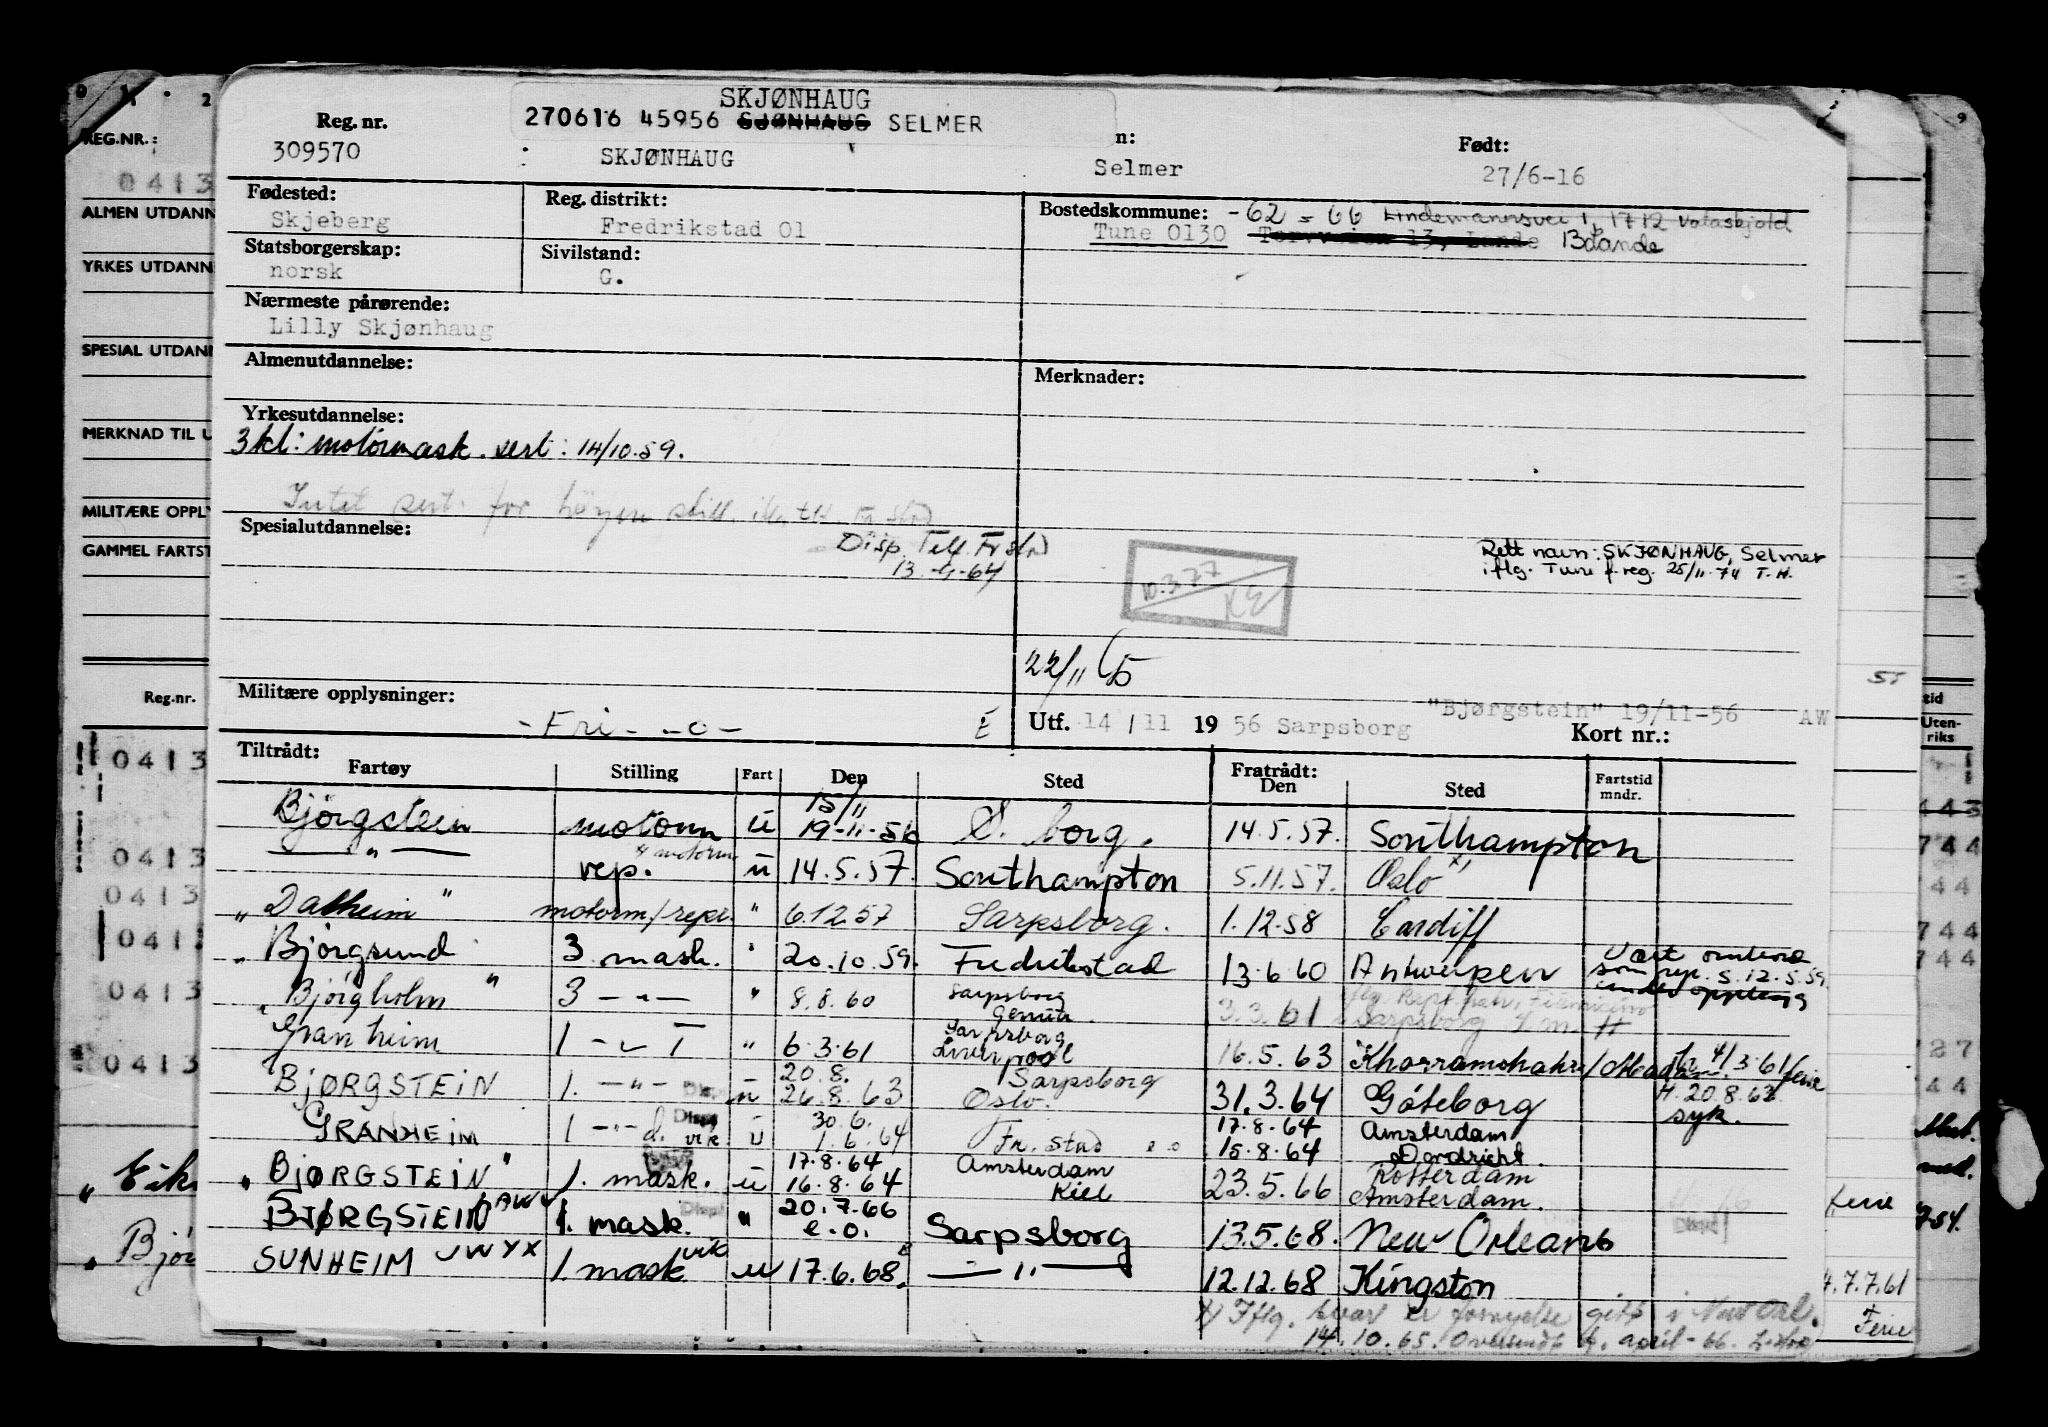 SKJØNHAUG
270616 45956 SJØNHAUG SELMER
Reg. nr. n: Født:
309570 : SKJØNHAUG Selmer 27/6-16
Fødested: Reg. distrikt: Bostedskommune: -62 = 66 Lindemannsvei 1, 1712 Valaskjold
Skjeberg Fredrikstad 01 Tune 0130 Torvveien 13, Lande
Statsborgerskap: Sivilstand:
norsk G.
Nærmeste pårørende:
Lilly Skjønhaug
Almenutdannelse: Merknader:
Yrkesutdannelse:
3 kl: motormask. sert: 14/10.59.
Intet sert. for høyere still.
Spesialutdannelse: Disp. Telf. Fr.stad
13.-4-64
Rett navn: SKJØNHAUG, Selmer
iflg. Tune f.reg. 25/11-74 T.H.
10.3.77
22/11 65
Militære opplysninger: "Bjørgstein" 19/11-56 AW
- Fri - -o- E Utf. 14 / 11 1956 Sarpsborg Kort nr.:
Tiltrådt: Fratrådt:
Fartøy Stilling Fart Den Sted Den Sted Fartstid mndr.
15/11
Bjørgstein motorm u 19-11-56 S. borg. 14.5.57. Southampton
— " — rep. motorm u 14.5.57. Southampton 5.11.57. Oslo x)
" Dalheim " motorm/rep. " 6.12.57 Sarpsborg. 1.12.58 Cardiff
" Bjørgsund 3 mask. " 20.10.59. Fredrikstad 13.6.60 Antwerpen
som rep. s. 12.5.59
" Bjørgholm " 3 - " - " 8.8.60 Sarpsborg 3.3.61 Sarpsborg
Granheim 1 - " - " 6.3.61 Sarpsborg Liverpool 16.5.63 Khorramshahr
20.8. Sarpsborg
BJØRGSTEIN 1. - " - u 26.8.63 Oslo. 31.3.64 Göteborg
H. 20.8.63
syk.
30.6. 17.8.64 Amsterdam
GRANHEIM 1 - " - vik u 1.6.64 Fr. stad 15.8.64 Dordricht.
17.8.64 Amsterdam Rotterdam
" BJØRGSTEIN " 1. mask. u 16.8.64 Kiel 23.5.66 Amsterdam.
20.7.66
BJØRGSTEIN 1. mask. " e.o. Sarpsborg 13.5.68. New Orleans
SUNHEIM JWYX 1. mask vik u 17.6.68. — " — 12.12.68 Kingston
x) Iflg. svar er fornyelse gitt i New Orl.
14.10.65. Oversendt april-66.
REG.NR.:
0413
ALMEN UTDANN
YRKES UTDANN
SPESIAL UTDANN
MERKNAD TIL U
MILITÆRE OPPLY
GAMMEL FARTST
Reg.nr.
0413
0413
0413
041
0413
0413
" Eik
" Bjør
5T
tid
Uten-
riks
443
744
44
744
744
27
44
ferie
7.7.61
Ferie